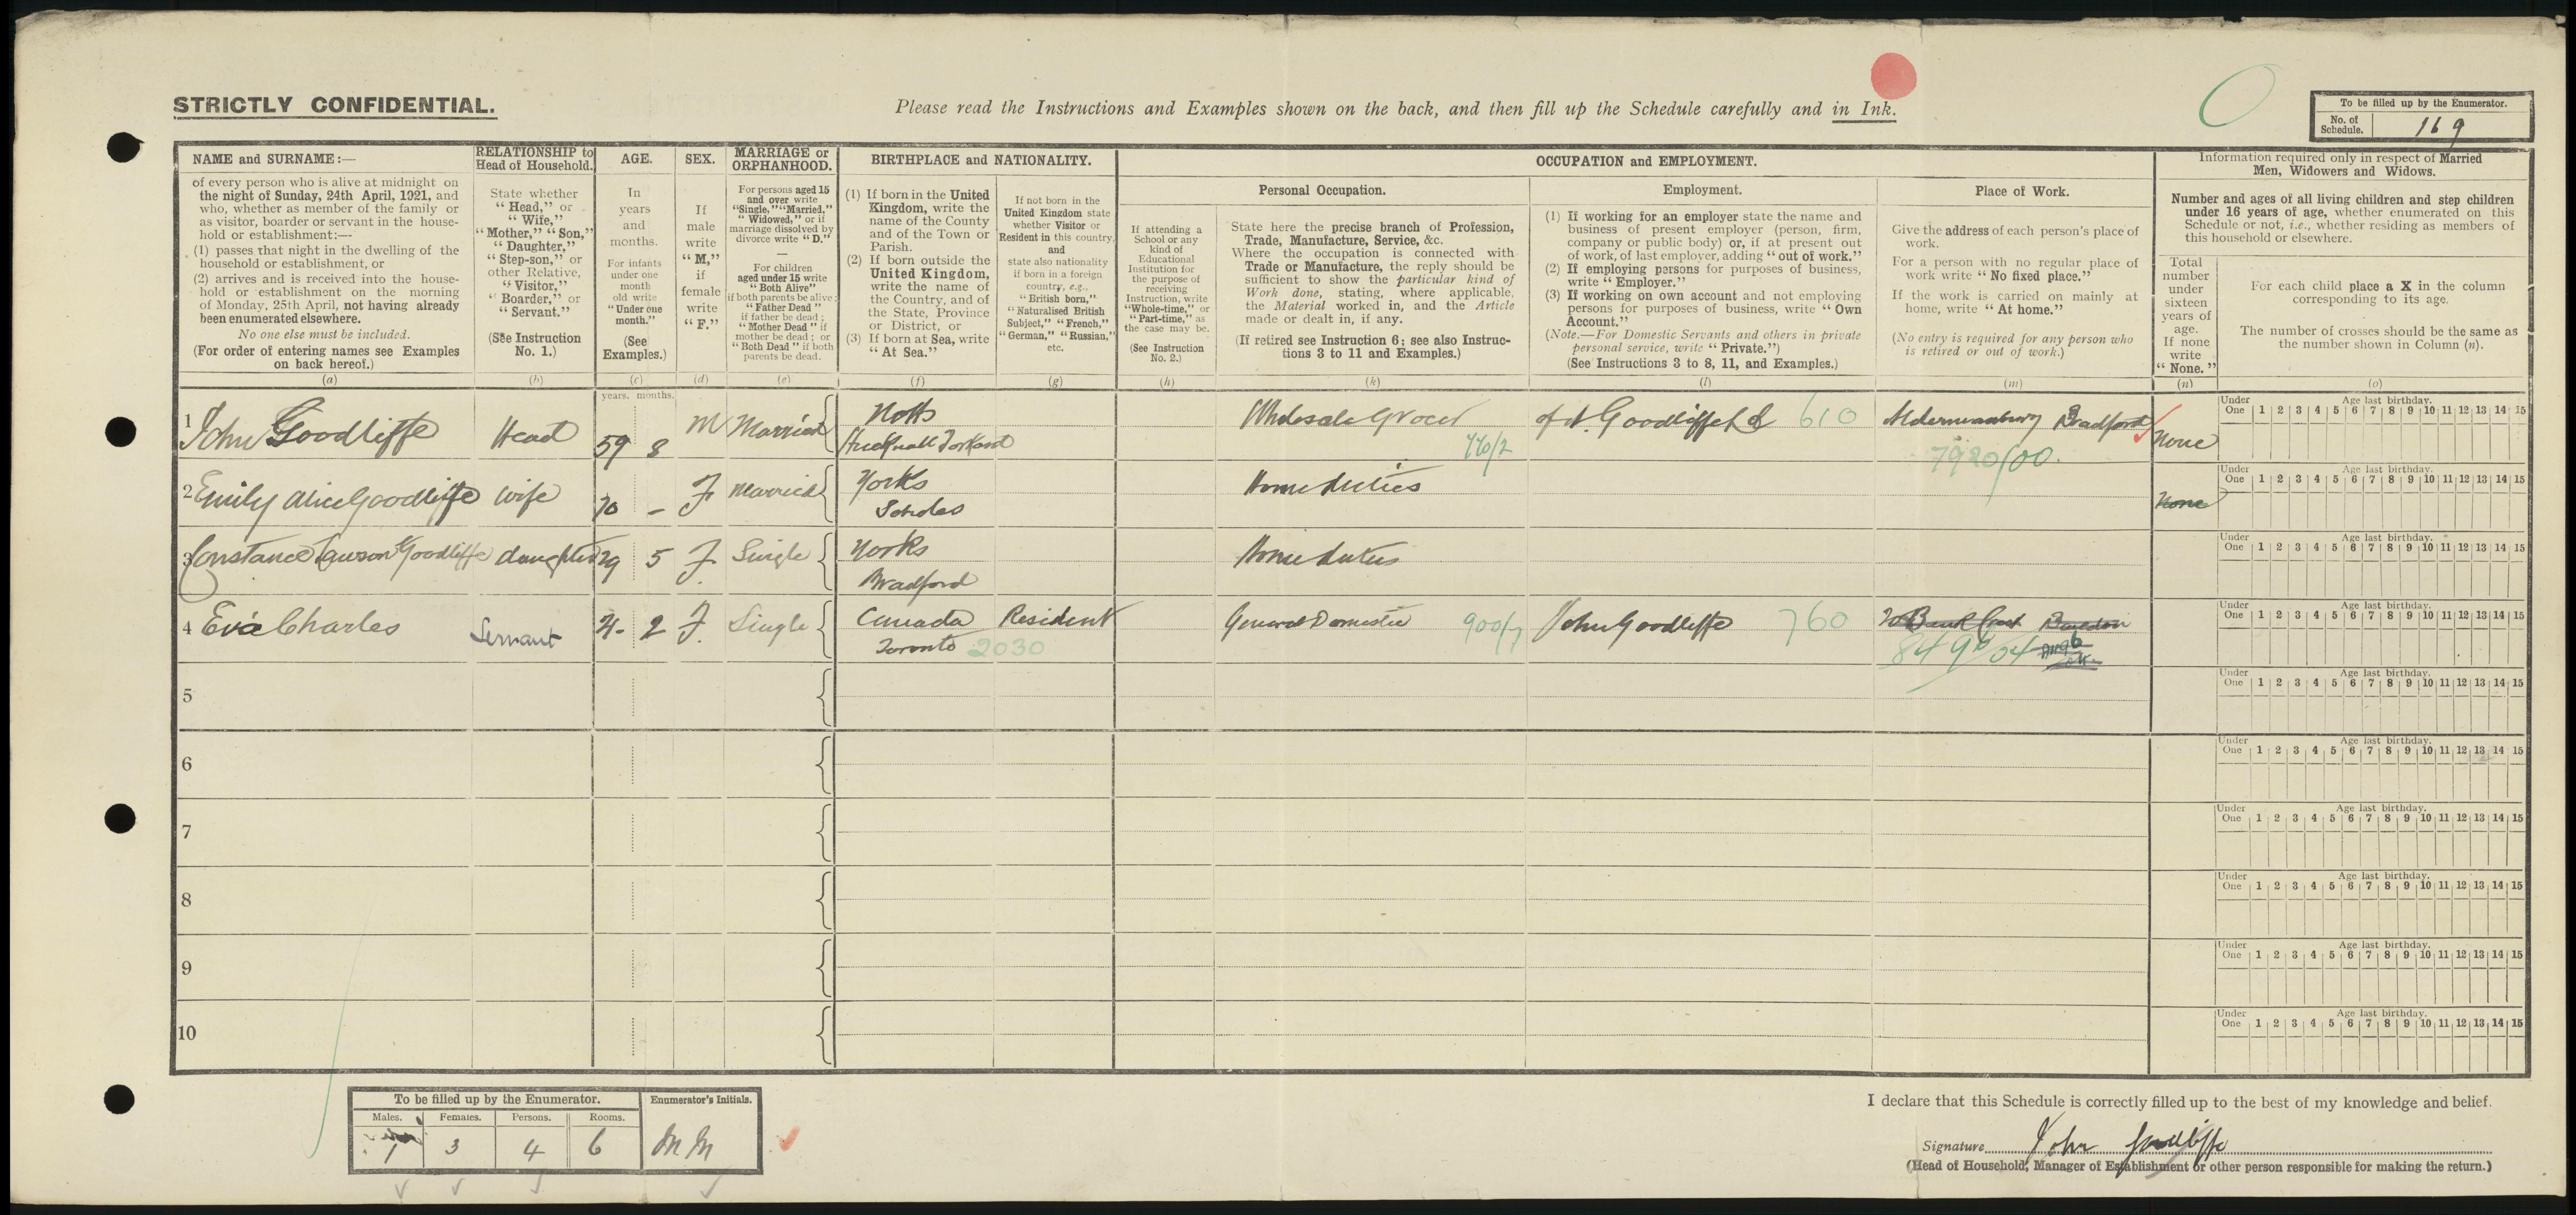 STRICTLY CONFIDENTIAL.
Please read the Instructions and Examples shown on the back, and then fill up the Schedule carefully and in Ink.
To be filled up by the Enumerator.
No. of Schedule. 169
NAME and SURNAME:—
of every person who is alive at midnight on
the night of Sunday, 24th April, 1921, and
who, whether as member of the family or
as visitor, boarder or servant in the house-
hold or establishment:—
(1) passes that night in the dwelling of the
household or establishment, or
(2) arrives and is received into the house-
hold or establishment on the morning
of Monday, 25th April, not having already
been enumerated elsewhere.
No one else must be included.
(For order of entering names see Examples
on back hereof.)
(a)
RELATIONSHIP to
Head of Household.
State whether
"Head," or
"Wife,"
"Mother," "Son,"
"Daughter,"
"Step-son," or
other Relative,
"Visitor,"
"Boarder," or
"Servant."
(See Instruction
No. 1.)
(b)
AGE.
In
years
and
months.
For infants
under one
month
old write
"Under one
month."
(See
Examples.)
(c)
SEX.
If
male
write
"M,"
if
female
write
"F."
(d)
MARRIAGE or
ORPHANHOOD.
For persons aged 15
and over write
"Single," "Married,"
"Widowed," or if
marriage dissolved by
divorce write "D."
—
For children
aged under 15 write
"Both Alive"
if both parents be alive;
"Father Dead"
if father be dead;
"Mother Dead" if
mother be dead; or
"Both Dead" if both
parents be dead.
(e)
BIRTHPLACE and NATIONALITY.
(1) If born in the United
Kingdom, write the
name of the County
and of the Town or
Parish.
(2) If born outside the
United Kingdom,
write the name of
the Country, and of
the State, Province
or District, or
(3) If born at Sea, write
"At Sea."
(f)
If not born in the
United Kingdom state
whether Visitor or
Resident in this country,
and
state also nationality
if born in a foreign
country, e.g.,
"British born,"
"Naturalised British
Subject," "French,"
"German," "Russian,"
etc.
(g)
OCCUPATION and EMPLOYMENT.
If attending a
School or any
kind of
Educational
Institution for
the purpose of
receiving
Instruction, write
"Whole-time," or
"Part-time," as
the case may be.
(See Instruction
No. 2.)
(h)
Personal Occupation.
State here the precise branch of Profession,
Trade, Manufacture, Service, &c.
Where the occupation is connected with
Trade or Manufacture, the reply should be
sufficient to show the particular kind of
Work done, stating, where applicable,
the Material worked in, and the Article
made or dealt in, if any.
(If retired see Instruction 6; see also Instruc-
tions 3 to 11 and Examples.)
(k)
Employment.
(1) If working for an employer state the name and
business of present employer (person, firm,
company or public body) or, if at present out
of work, of last employer, adding "out of work."
(2) If employing persons for purposes of business,
write "Employer."
(3) If working on own account and not employing
persons for purposes of business, write "Own
Account."
(Note.—For Domestic Servants and others in private
personal service, write "Private.")
(See Instructions 3 to 8, 11, and Examples.)
(l)
Place of Work.
Give the address of each person's place of
work.
For a person with no regular place of
work write "No fixed place."
If the work is carried on mainly at
home, write "At home."
(No entry is required for any person who
is retired or out of work.)
(m)
Information required only in respect of Married
Men, Widowers and Widows.
Number and ages of all living children and step children
under 16 years of age, whether enumerated on this
Schedule or not, i.e., whether residing as members of
this household or elsewhere.
Total
number
under
sixteen
years of
age.
If none
write
"None."
(n)
For each child place a X in the column
corresponding to its age.
The number of crosses should be the same as
the number shown in Column (n).
(o)
years. months.
1 John Goodliffe Head 59 8 M Married Notts Wholesale Grocer 610 Aldermanbury Bradford None
Hucknall Torkard 770/2 7920/00.
2 Emily Alice Goodliffe Wife 70 – F Married Yorks Home duties None
Scholes
3 Constance Lawson Goodliffe daughter 29 5 F. Single Yorks Home duties
Bradford
4 Eva Charles Servant 2 F. Single Canada Resident General Domestic 900/7 John Goodliffe 760
Toronto 2030
5
6
7
8
9
10
Under One Age last birthday. 1 2 3 4 5 6 7 8 9 10 11 12 13 14 15
Under One Age last birthday. 1 2 3 4 5 6 7 8 9 10 11 12 13 14 15
Under One Age last birthday. 1 2 3 4 5 6 7 8 9 10 11 12 13 14 15
Under One Age last birthday. 1 2 3 4 5 6 7 8 9 10 11 12 13 14 15
Under One Age last birthday. 1 2 3 4 5 6 7 8 9 10 11 12 13 14 15
Under One Age last birthday. 1 2 3 4 5 6 7 8 9 10 11 12 13 14 15
Under One Age last birthday. 1 2 3 4 5 6 7 8 9 10 11 12 13 14 15
Under One Age last birthday. 1 2 3 4 5 6 7 8 9 10 11 12 13 14 15
Under One Age last birthday. 1 2 3 4 5 6 7 8 9 10 11 12 13 14 15
Under One Age last birthday. 1 2 3 4 5 6 7 8 9 10 11 12 13 14 15
To be filled up by the Enumerator. Enumerator's Initials.
Males. Females. Persons. Rooms.
1 3 4 6 MM
I declare that this Schedule is correctly filled up to the best of my knowledge and belief.
Signature John Goodliffe
(Head of Household, Manager of Establishment or other person responsible for making the return.)